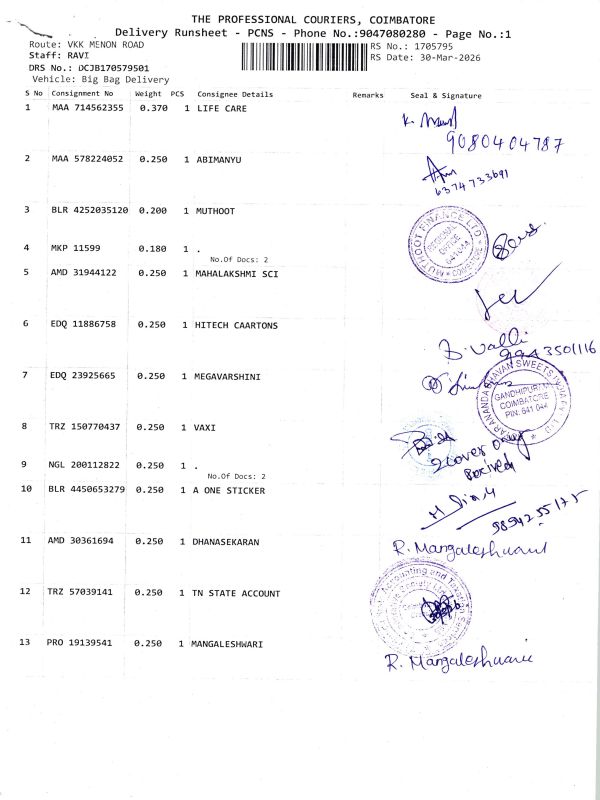 THE PROFESSIONAL COURIERS, COIMBATORE
Delivery Runsheet - PCNS - Phone No.:9047080280 - Page No.:1
Route: VKK MENON ROAD
Staff: RAVI
DRS No.: DCJB170579501
Vehicle: Big Bag Delivery
RS No.: 1705795
RS Date: 30-Mar-2026
S No Consignment No Weight PCS Consignee Details Remarks Seal & Signature
1 MAA 714562355 0.370 1 LIFE CARE
9080404787
2 MAA 578224052 0.250 1 ABIMANYU
6374733691
3 BLR 4252035120 0.200 1 MUTHOOT
MUTHOOT FINANCE LTD
REGIONAL OFFICE
641 044
4 MKP 11599 0.180 1 .
No.Of Docs: 2
5 AMD 31944122 0.250 1 MAHALAKSHMI SCI
6 EDQ 11886758 0.250 1 HITECH CAARTONS
B. Valli
9943501116
7 EDQ 23925665 0.250 1 MEGAVARSHINI
GANDHIPURAM
COIMBATORE
PIN: 641 044
8 TRZ 150770437 0.250 1 VAXI
2 cover only
9 NGL 200112822 0.250 1 .
No.Of Docs: 2
10 BLR 4450653279 0.250 1 A ONE STICKER
9894255175
11 AMD 30361694 0.250 1 DHANASEKARAN
R. Mangaleshwari
12 TRZ 57039141 0.250 1 TN STATE ACCOUNT
Accounting and Taxation
13 PRO 19139541 0.250 1 MANGALESHWARI
R. Mangaleshwari